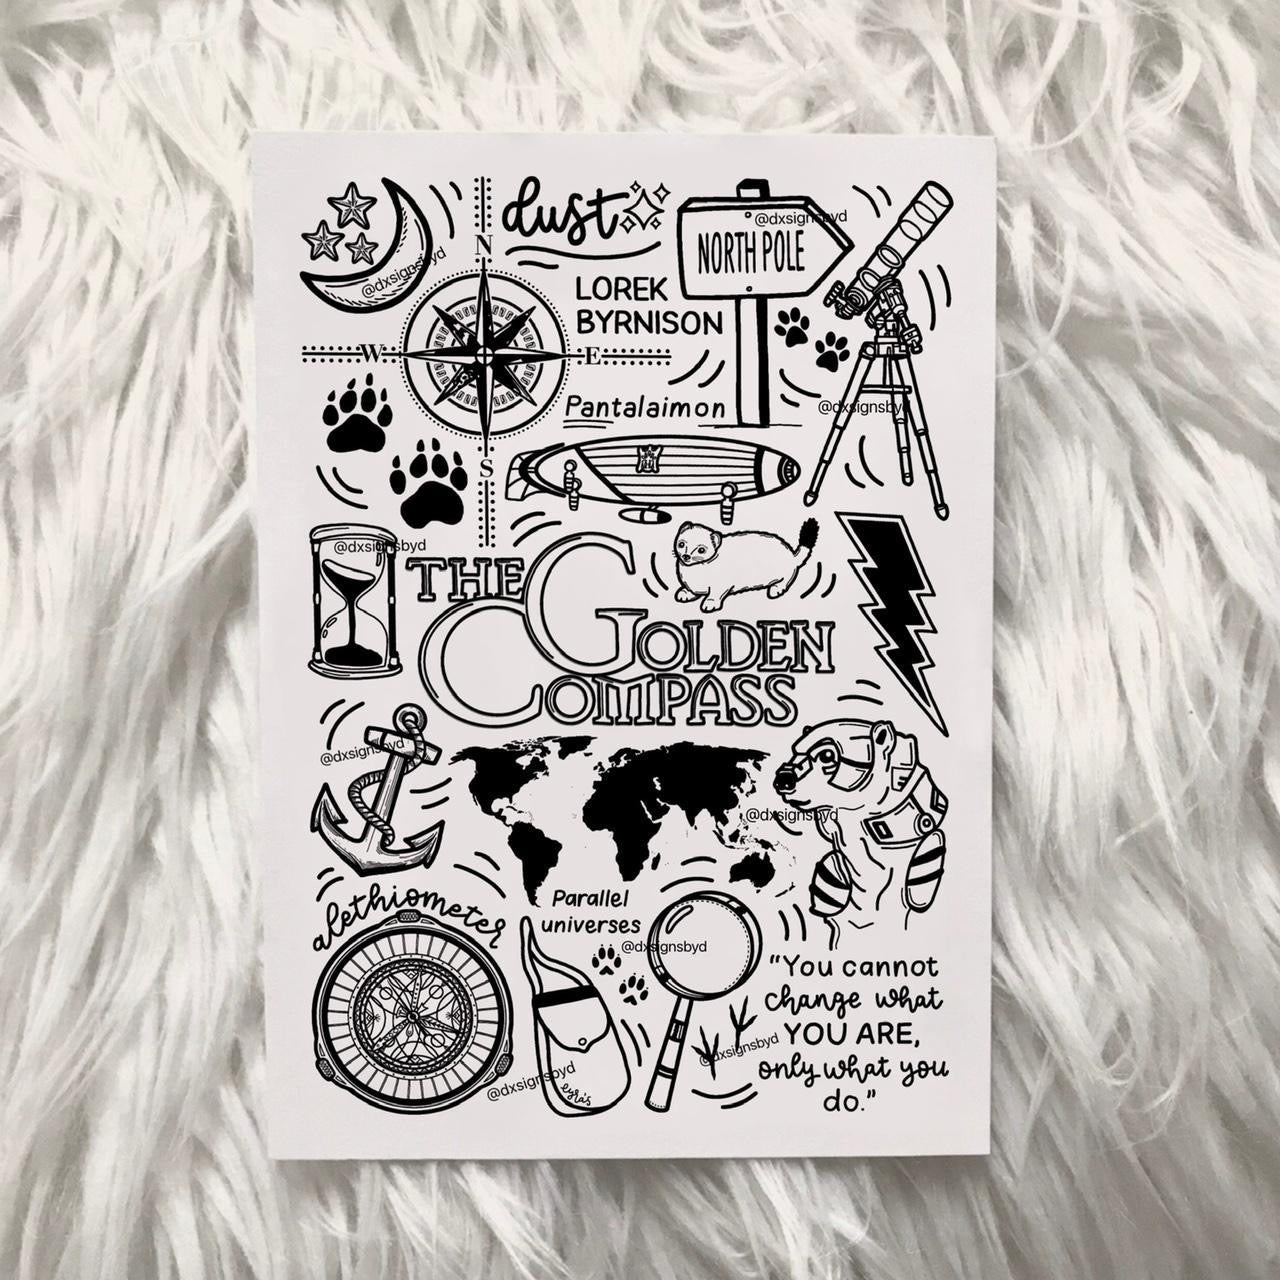 dust
NORTH POLE
@dxsignsbyd
@dxsignsbyd
N
LOREK
BYRNISON
W
E
Pantalaimon
@dxsignsbyd
S
@dxsignsbyd
THE
GOLDEN
COMPASS
@dxsignsbyd
@dxsignsbyd
alethiometer
Parallel
universes
@dxsignsbyd
"You cannot
change what
YOU ARE,
only what you
do."
@dxsignsbyd
@dxsignsbyd